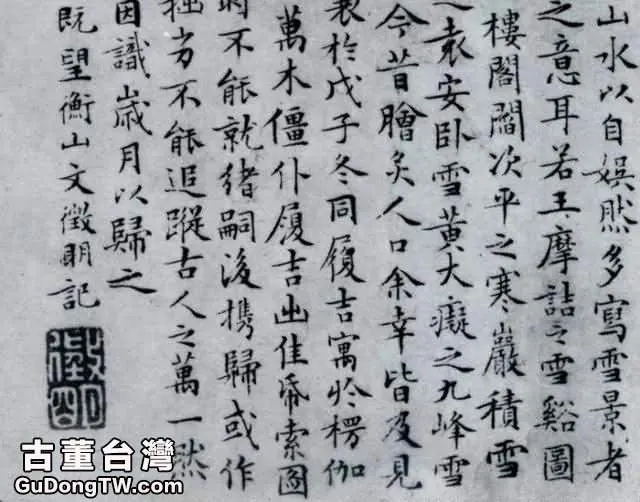 山水以自娛然多寫雪景者
之意耳若王摩詰之雪谿圖
樓閣閻次平之寒巖積雪
之袁安卧雪黃大癡之九峰雪
今昔膾炙人口余幸皆及見
於戊子冬同履吉寓於楞伽
萬木僵仆履吉出佳帋索圖
時不能就緒嗣後携歸或作
拙劣不能追蹤古人之萬一然
因識歲月以歸之
既望衡山文徵明記
徵明
古董台灣
GuDongTW.com